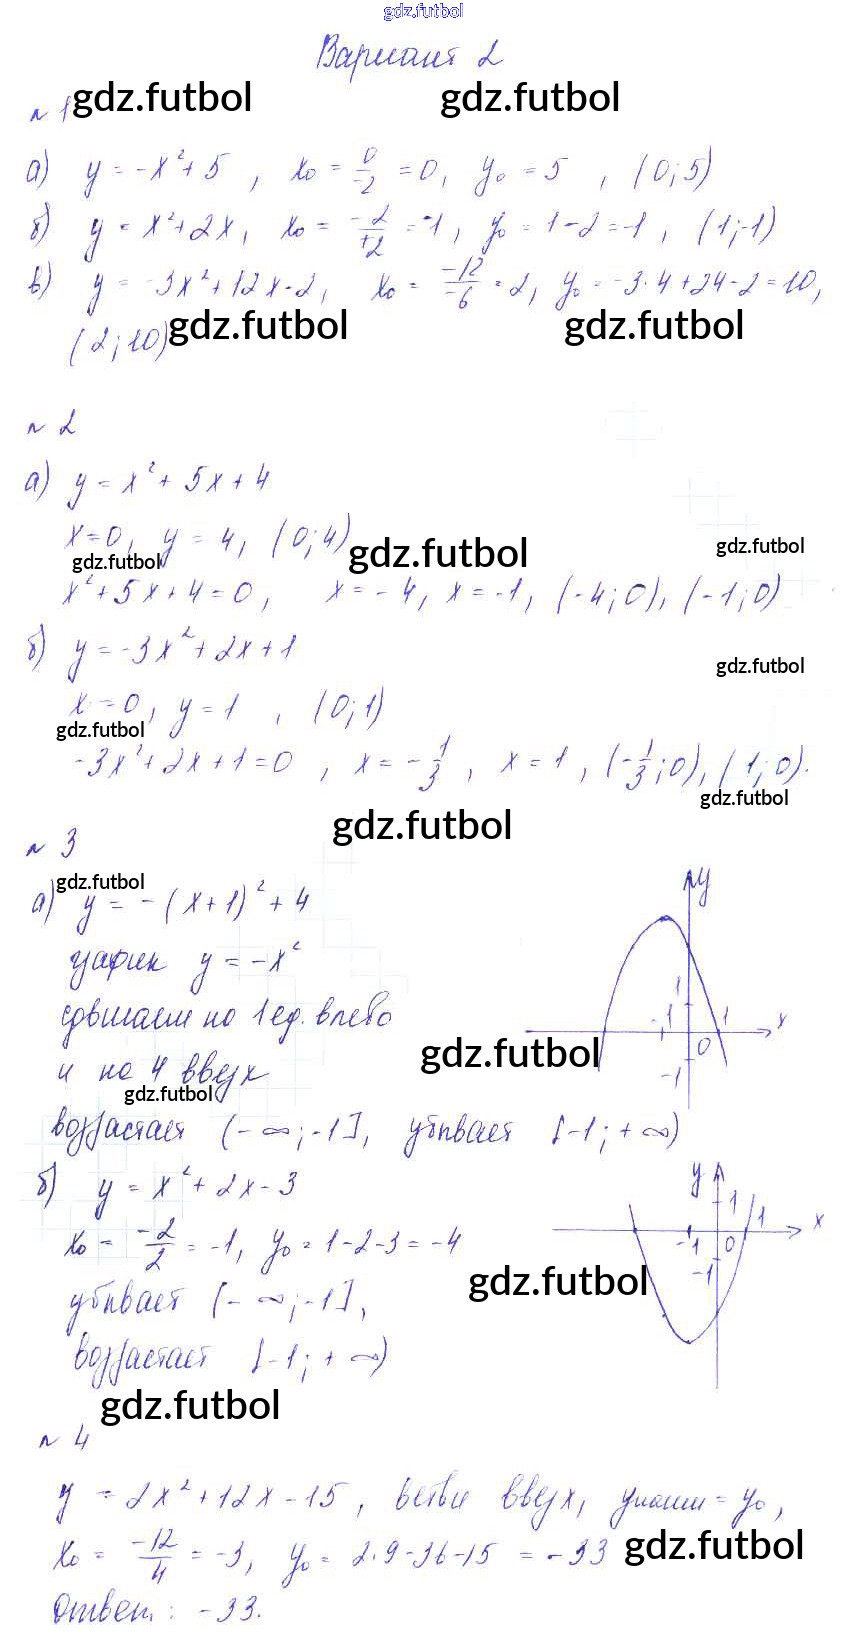 gdz.futbol
Вариант 2
gdz.futbol gdz.futbol
№ 1
а) y = -x² + 5, x₀ = 0/-2 = 0, y₀ = 5, (0; 5)
б) y = x² + 2x, x₀ = -2/+2 = -1, y₀ = 1 - 2 = -1, (1; -1)
в) y = -3x² + 12x - 2, x₀ = -12/-6 = 2, y₀ = -3·4 + 24 - 2 = 10,
(2; 10)
gdz.futbol gdz.futbol
№ 2
а) y = x² + 5x + 4
x = 0, y = 4, (0; 4)
gdz.futbol gdz.futbol gdz.futbol
x² + 5x + 4 = 0, x = -4, x = -1, (-4; 0), (-1; 0)
б) y = -3x² + 2x + 1
gdz.futbol
x = 0, y = 1, (0; 1)
gdz.futbol
-3x² + 2x + 1 = 0, x = -1/3, x = 1, (-1/3; 0), (1; 0).
gdz.futbol
gdz.futbol
№ 3
gdz.futbol
а) y = -(x+1)² + 4
график y = -x²
сдвигаем на 1 ед. влево
и на 4 вверх
y
1
-1 1 x
0
-1
gdz.futbol
gdz.futbol
возрастает (-∞; -1], убывает [-1; +∞)
б) y = x² + 2x - 3
x₀ = -2/2 = -1, y₀ = 1 - 2 - 3 = -4
убывает (-∞; -1],
возрастает [-1; +∞)
y
1 1 x
-1 0
-1
gdz.futbol
gdz.futbol
№ 4
y = 2x² + 12x - 15, ветви вверх, yнаим = y₀,
x₀ = -12/4 = -3, y₀ = 2·9 - 36 - 15 = -33
gdz.futbol
Ответ: -33.